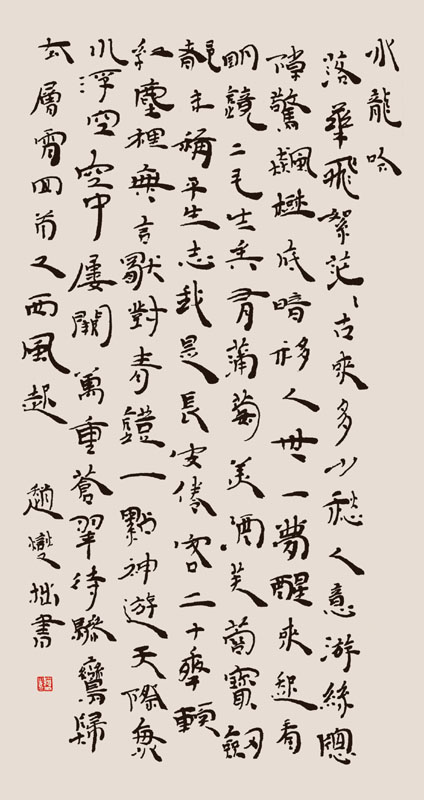 水龍吟
落華飛絮茫々古來多少愁人意游絲窗
隙驚飆樹底暗移人世一夢醒來起看
明鏡二毛生矣有蒲萄美酒芙蓉寶劍
都未稱平生志我是長安倦客二十年輭
紅塵裡無言獸對青鐙一點神游天際海
水浮空空中屢閣萬重蒼翠待驂鸞歸
去層霄回首又西風起 趙燮拙書